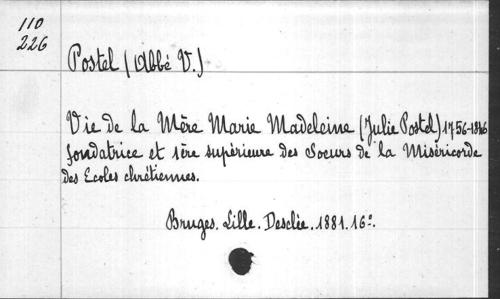 110
226
Postel (Abbé V.)
Vie de la Mère Marie Madeleine (Julie Postel) 1756-1846
fondatrice et 1ère supérieure des Soeurs de la Miséricorde
des Ecoles chrétiennes.
Bruges. Lille. Desclée. 1881. 16º.